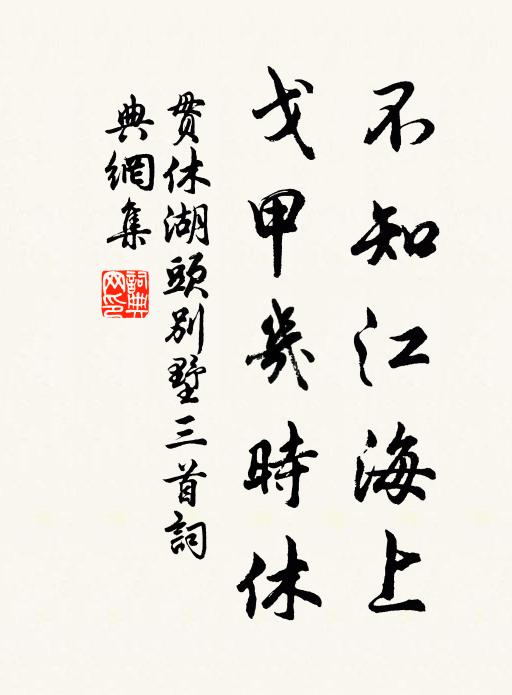 不知江海上
戈甲幾時休
貫休湖頭別墅三首詞
典網集
詞典
网印